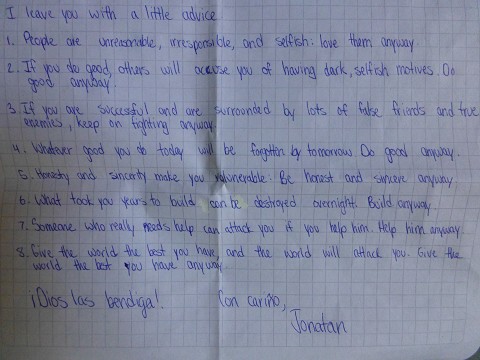 I leave you with a little advice
1. People are unreasonable, irresponsible, and selfish: love them anyway
2. If you do good, others will accuse you of having dark, selfish motives. Do
good anyway.
3. If you are successful and are surrounded by lots of false friends and true
enemies, keep on fighting anyway.
4. Whatever good you do today will be forgotten by tomorrow Do good anyway.
5. Honesty and sincerity make you vulnerable: Be honest and sincere anyway
6. What took you years to build can be destroyed overnight. Build anyway
7. Someone who really needs help can attack you if you help him. Help him anyway.
8. Give the world the best you have, and the world will attack you. Give the
world the best you have anyway.
¡Dios las bendiga! Con cariño,
Jonatan